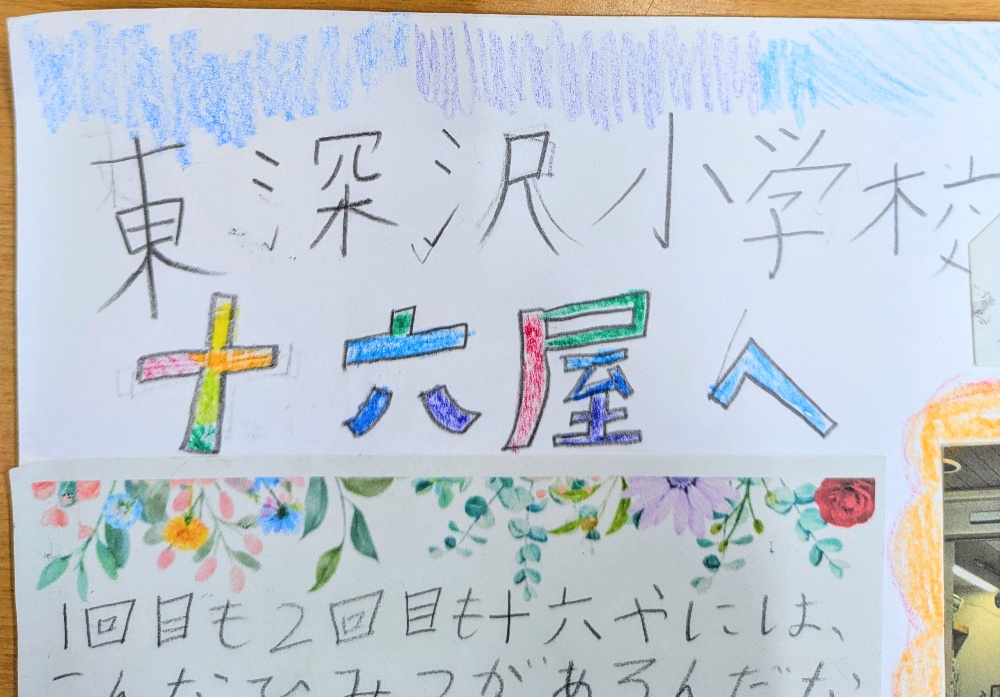 東深沢小学校
十六屋へ
1回目も2回目も十六やには、
こんなひみつがあるんだな